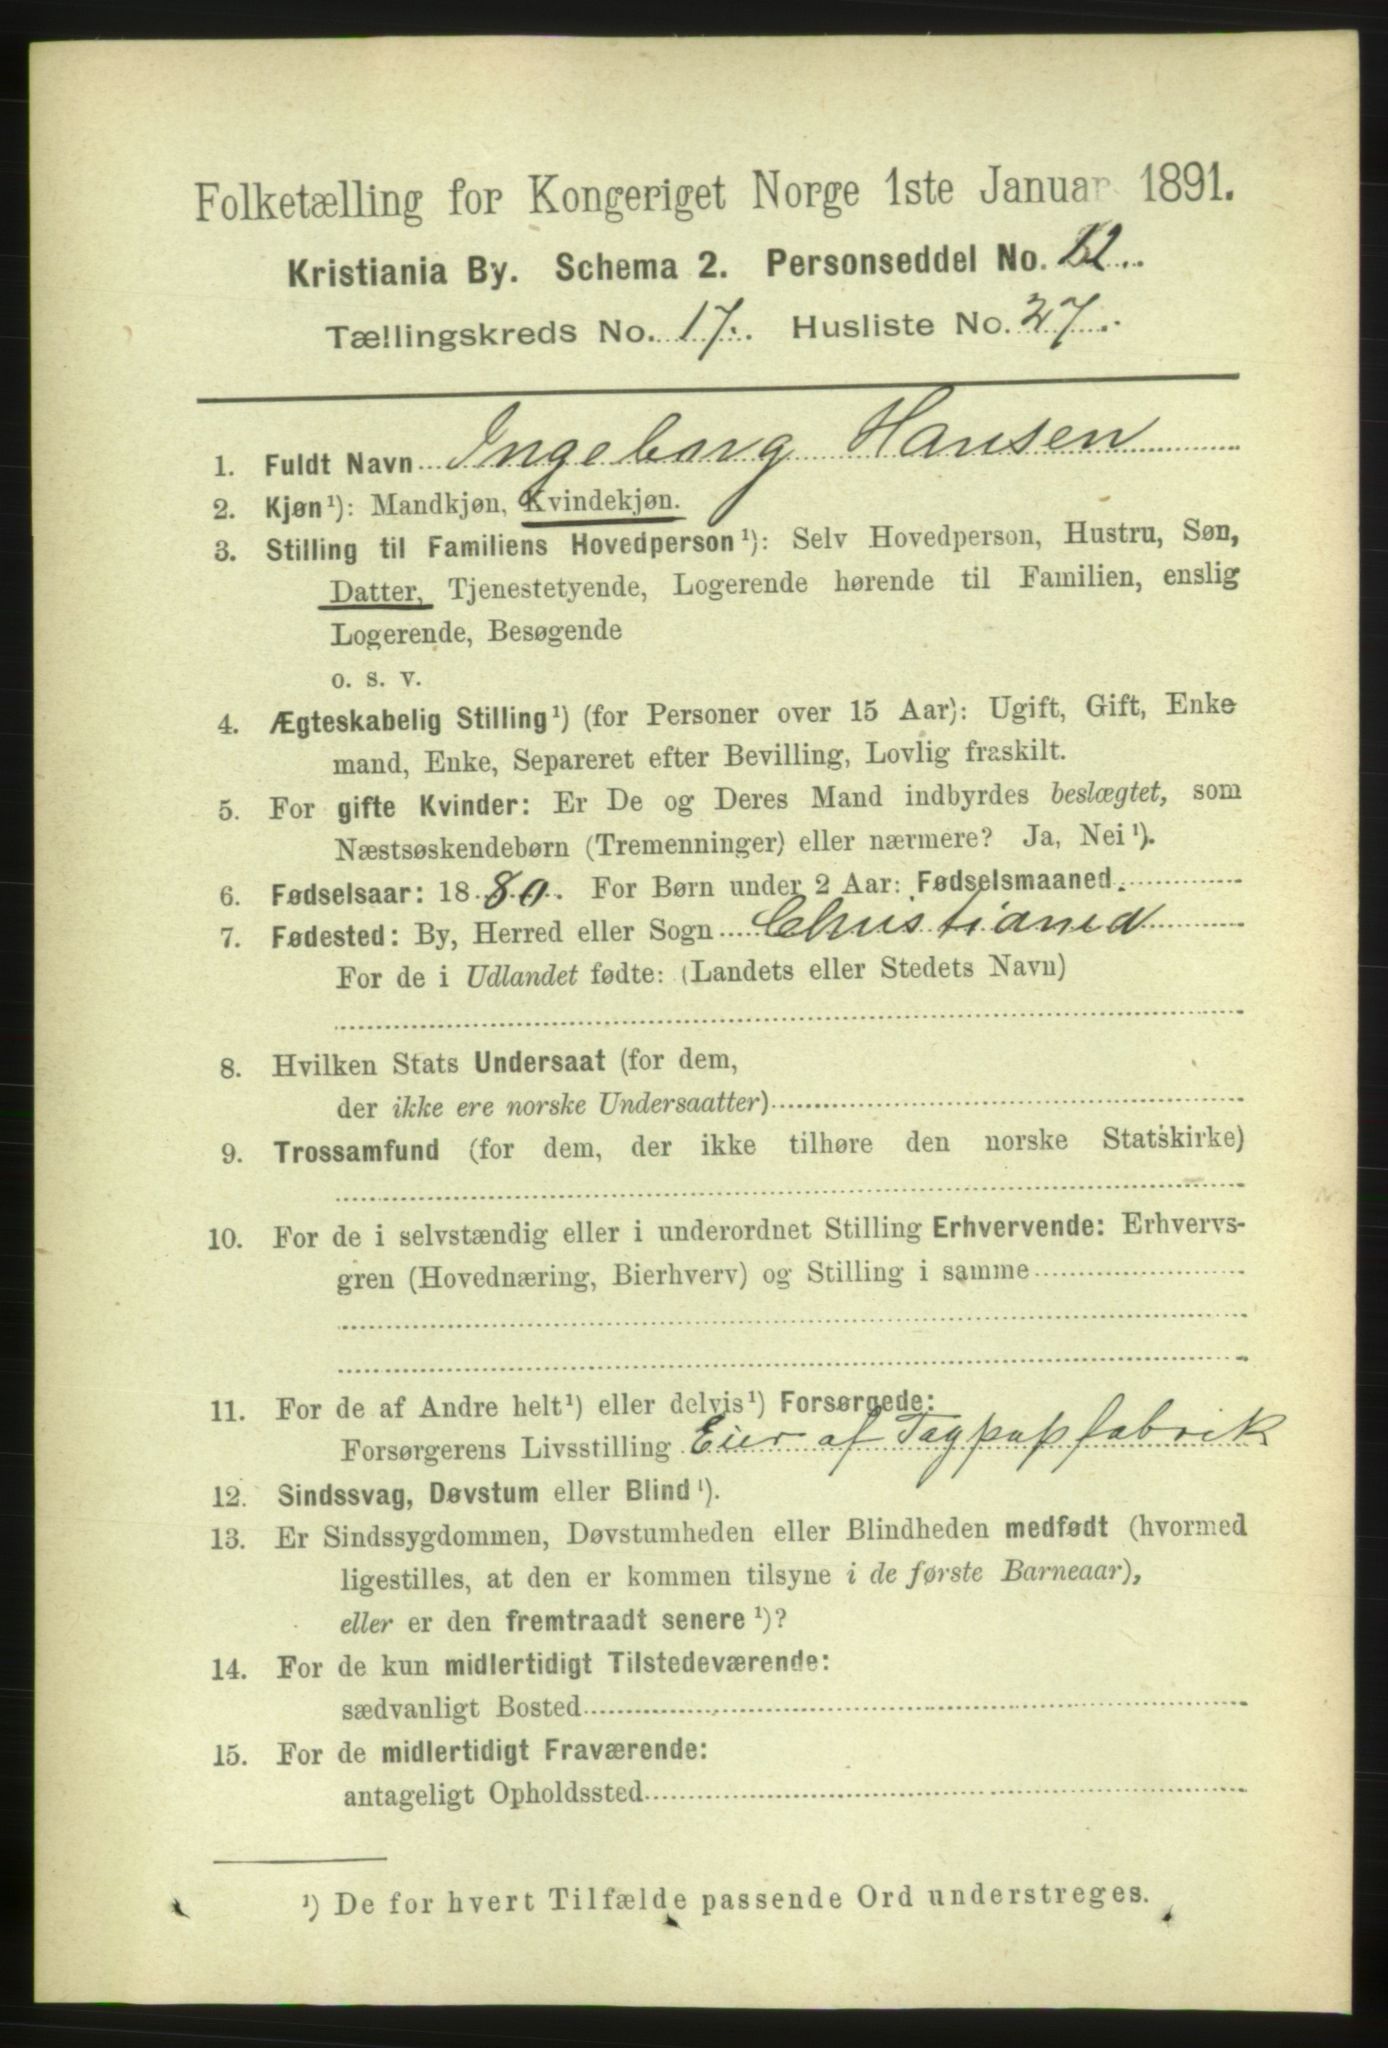 Folketælling for Kongeriget Norge 1ste Januar 1891.
Kristiania By. Schema 2. Personseddel No. 12.
Tællingskreds No. 17. Husliste No. 27.
1. Fuldt Navn Ingeborg Hansen
2. Kjøn¹): Mandkjøn, Kvindekjøn.
3. Stilling til Familiens Hovedperson¹): Selv Hovedperson, Hustru, Søn,
Datter, Tjenestetyende, Logerende hørende til Familien, enslig
Logerende, Besøgende
o. s. v.
4. Ægteskabelig Stilling¹) (for Personer over 15 Aar): Ugift, Gift, Enke
mand, Enke, Separeret efter Bevilling, Lovlig fraskilt.
5. For gifte Kvinder: Er De og Deres Mand indbyrdes beslægtet, som
Næstsøskendebørn (Tremenninger) eller nærmere? Ja, Nei¹).
6. Fødselsaar: 1880. For Børn under 2 Aar: Fødselsmaaned.
7. Fødested: By, Herred eller Sogn Christiania
For de i Udlandet fødte: (Landets eller Stedets Navn)
8. Hvilken Stats Undersaat (for dem,
der ikke ere norske Undersaatter)
9. Trossamfund (for dem, der ikke tilhøre den norske Statskirke)
10. For de i selvstændig eller i underordnet Stilling Erhvervende: Erhvervs-
gren (Hovednæring, Bierhverv) og Stilling i samme
11. For de af Andre helt¹) eller delvis¹) Forsørgede:
Forsørgerens Livsstilling Eier af Tagpapfabrik
12. Sindssvag, Døvstum eller Blind¹).
13. Er Sindssygdommen, Døvstumheden eller Blindheden medfødt (hvormed
ligestilles, at den er kommen tilsyne i de første Barneaar),
eller er den fremtraadt senere¹)?
14. For de kun midlertidigt Tilstedeværende:
sædvanligt Bosted
15. For de midlertidigt Fraværende:
antageligt Opholdssted
¹) De for hvert Tilfælde passende Ord understreges.